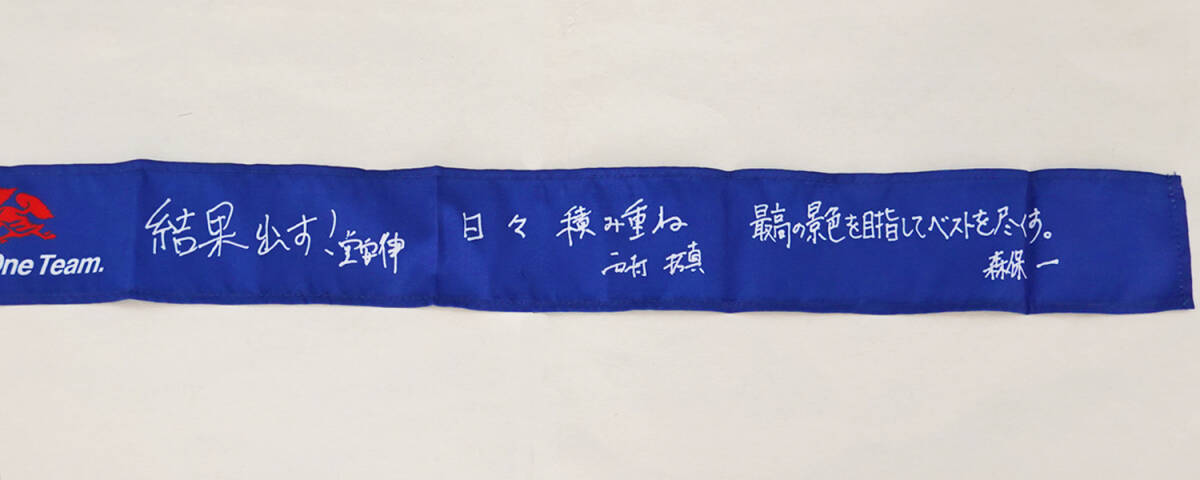 One Team.
結果出す!
堂安律
日々 積み重ね
西村 拓真
最高の景色を目指してベストを尽くす。
森保 一